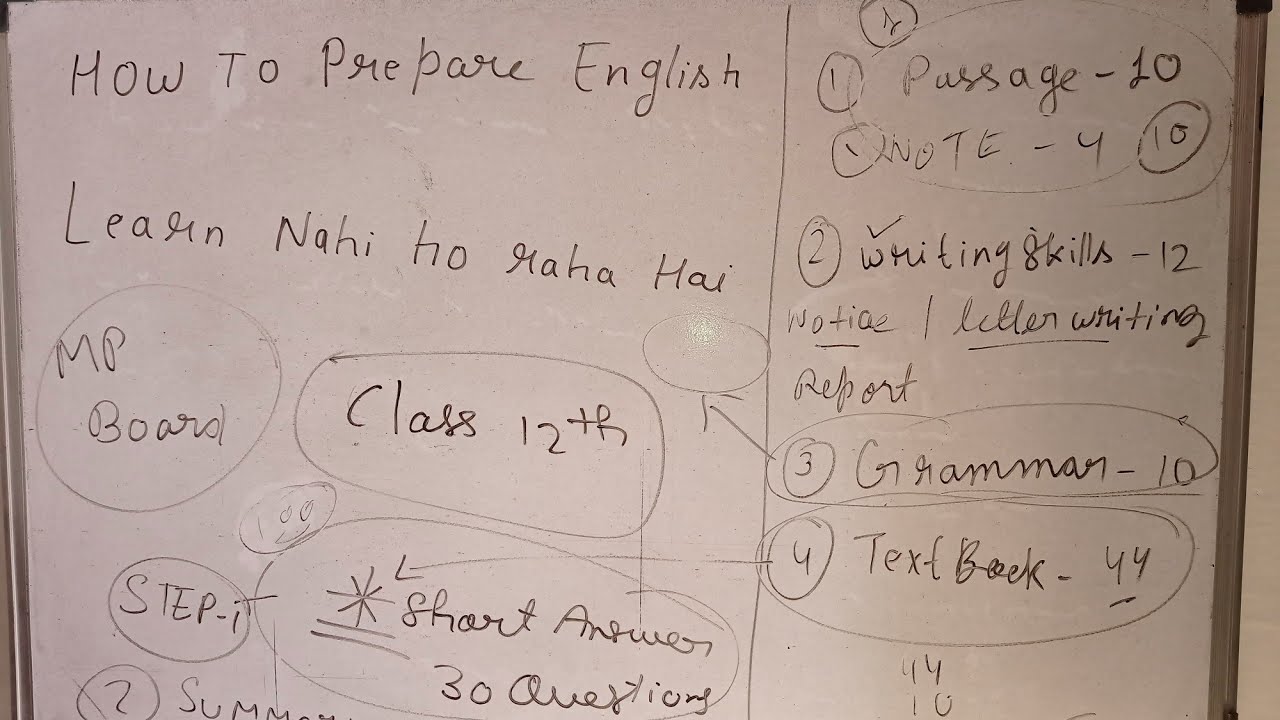 How To Prepare English
Learn Nahi ho raha Hai
MP
Board
Class 12th
100
STEP-1
* Short Answer
30 Questions
2
1
1 Passage - 10
NOTE - 4 10
2 Writing Skills - 12
Notice / letter writing
Report
3 Grammar - 10
4 Text Book - 44
44
10